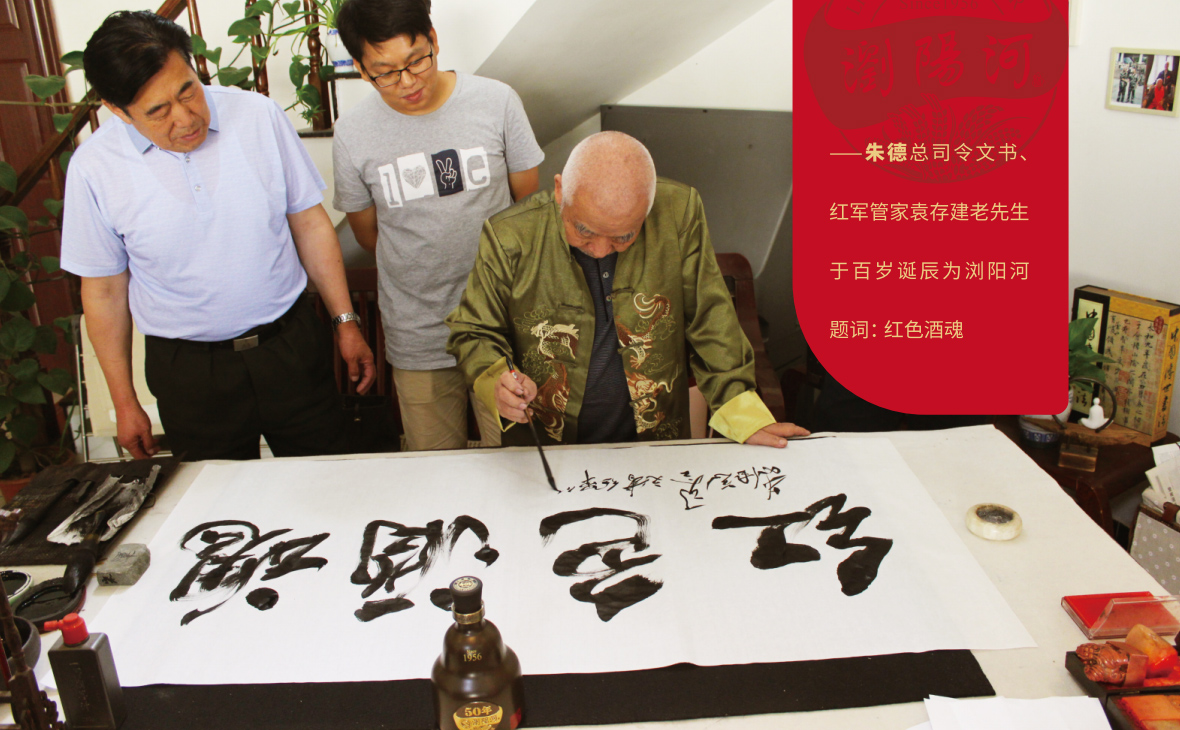 瀏陽河
——朱德总司令文书、
红军管家袁存建老先生
于百岁诞辰为浏阳河
题词：红色酒魂
love
红色酒魂
1956
50年